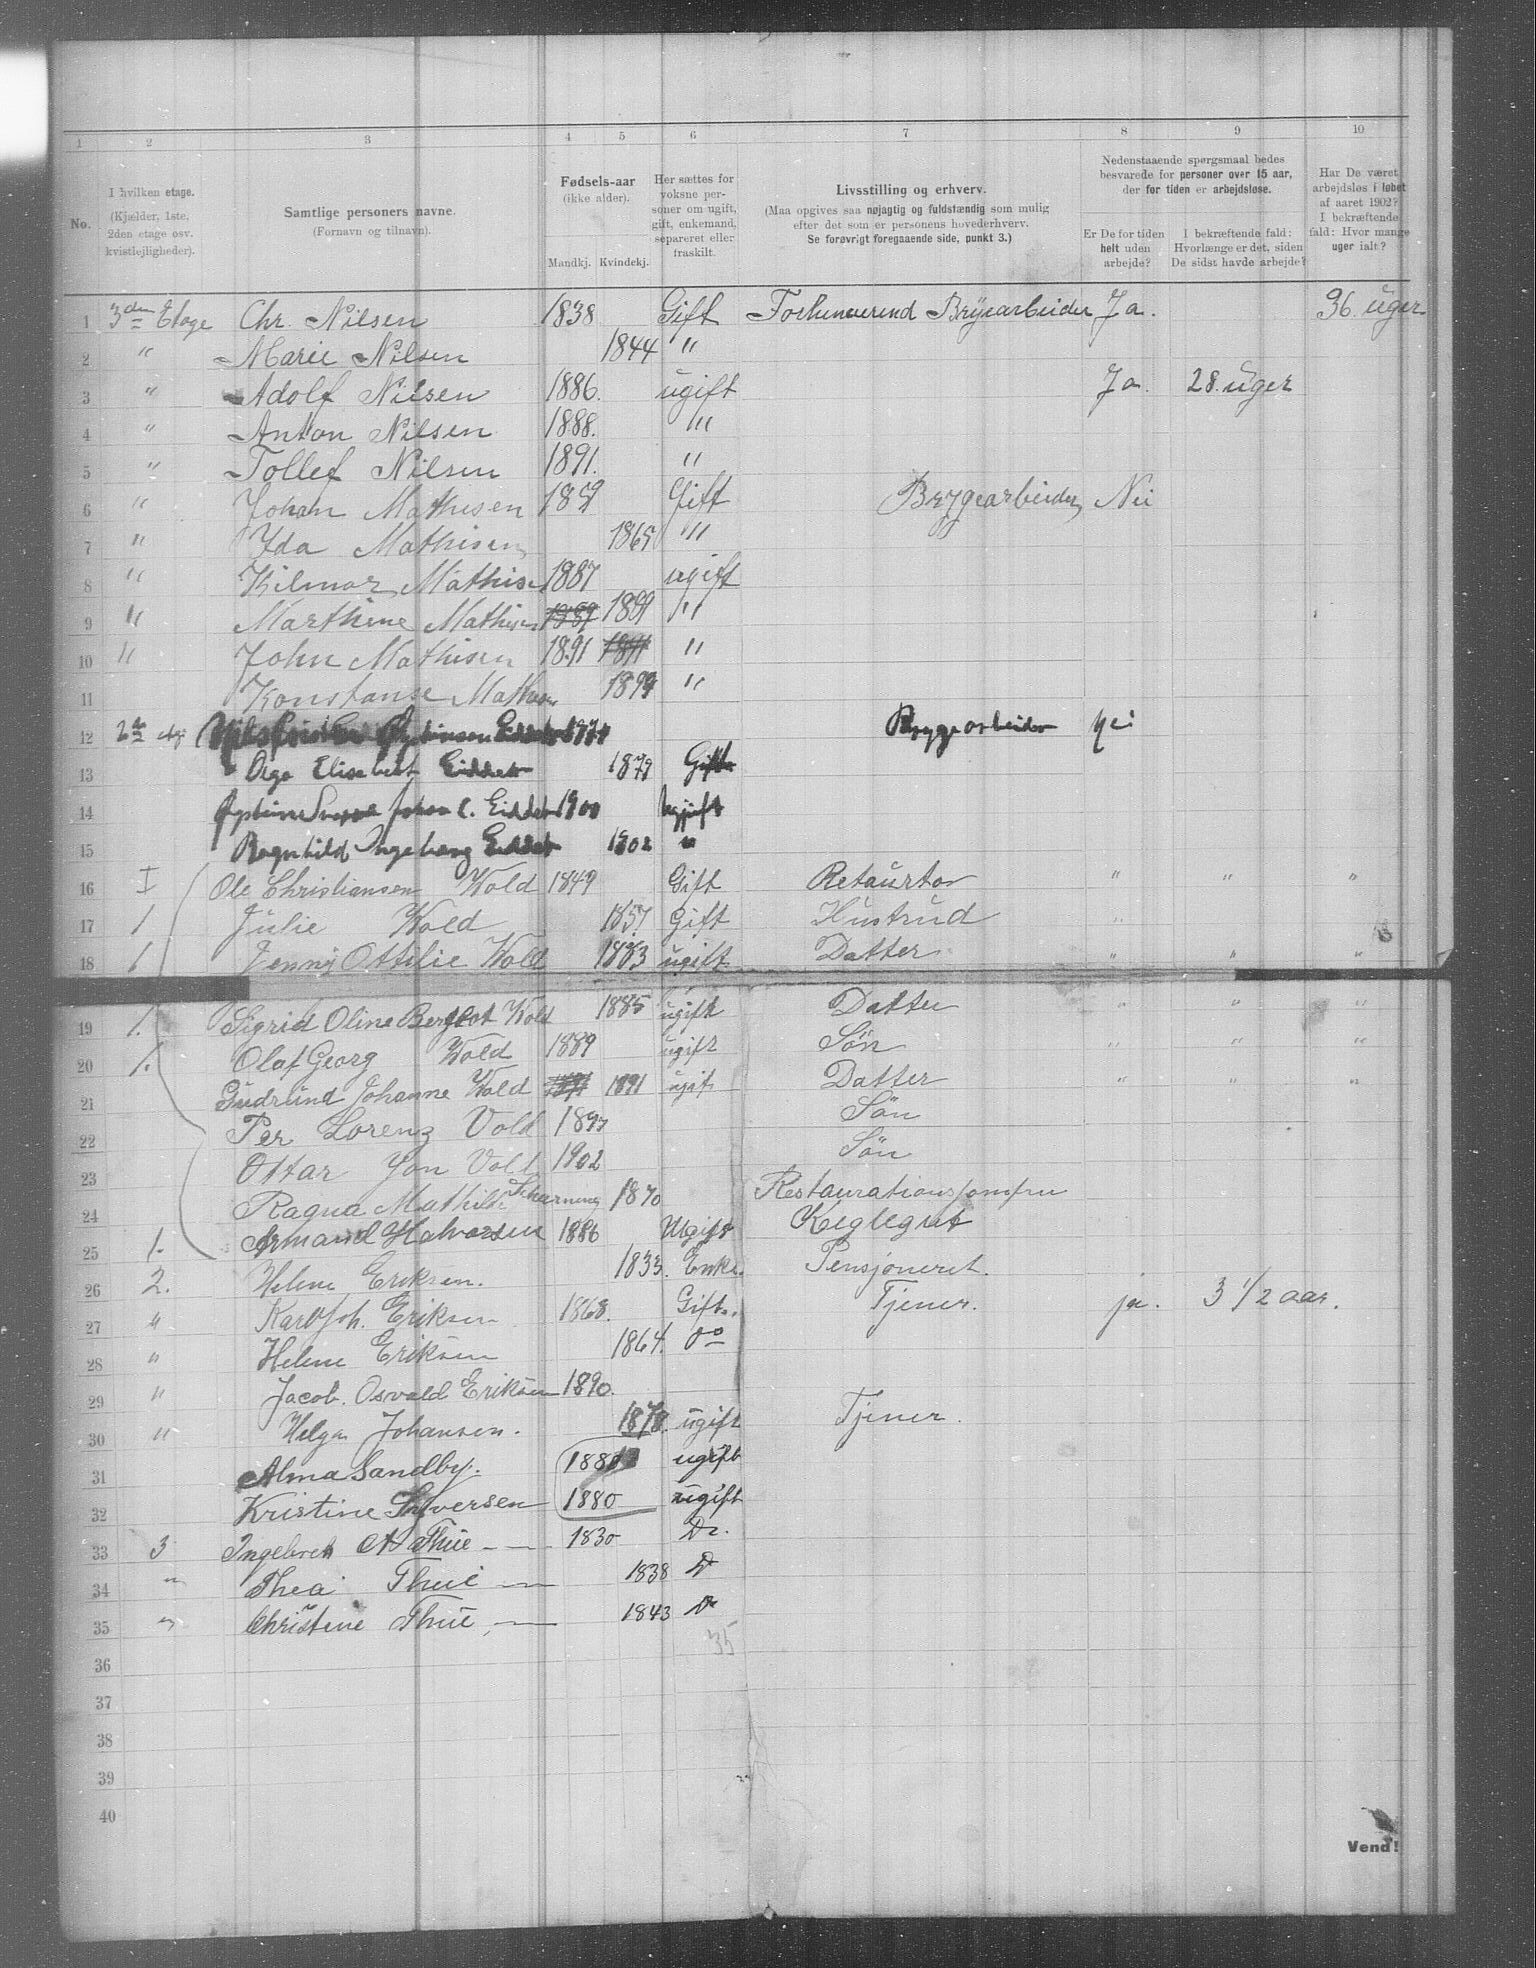 1 2 3 4 5 6 7 8 9 10
No.
I hvilken etage.
(Kjælder, 1ste,
2den etage osv.
kvistlejligheder).
Samtlige personers navne.
(Fornavn og tilnavn).
Fødsels-aar
(ikke alder).
Mandkj. Kvindekj.
Her sættes for
voksne per-
soner om ugift,
gift, enkemand,
separeret eller
fraskilt.
Livsstilling og erhverv.
(Maa opgives saa nøjagtig og fuldstændig som mulig
efter det som er personens hovederhverv.
Se forøvrigt foregaaende side, punkt 3.)
Nedenstaaende spørgsmaal bedes
besvarede for personer over 15 aar,
der for tiden er arbejdsløse.
Er De for tiden
helt uden
arbejde?
I bekræftende fald:
Hvorlænge er det, siden
De sidst havde arbejde?
Har De været
arbejdsløs i løbet
af aaret 1902?
I bekræftende
fald: Hvor mange
uger ialt?
1 3den Etage Chr. Nilsen 1838 Gift Bryearbeider Ja. 36 uger
2 " Marie Nilsen 1844 "
3 " Adolf Nilsen 1886. ugift Ja. 28. uger
4 " Anton Nilsen 1888. "
5 " Tollef Nilsen 1891. "
6 " Johan Mathisen 1859 Gift Bryggearbeider Nei
7 " Ida Mathisen 1865 "
8 " Hilmar Mathise 1887 ugift
9 " Marthine Mathisen 1889 "
10 " John Mathisen 1891 "
11 Konstanse Mathisen 1899 "
12 2 etg Eiddet Bryggearbeider nei
13 Olga Elisabert Eiddet 1879 Gift
14 Johan C. Eiddet 1900 Ugift
15 Ragnhild Ingeborg Eiddet 1902 "
16 I Ole Christiansen Wold 1849 Gift Retaurtør " " "
17 1 Julie Wold 1857 Gift Hustrud "
18 1 Jenny Ottilie Wold 1883 ugift Datter " " "
19 1. Sigrid Oline Bergliot Wold 1885 ugift Datter " " "
20 1. Olaf Georg Wold 1889 ugift Søn " " "
21 Gudrund Johanne Wold 1891 ugif Datter " " "
22 Per Lorenz Vold 1897 Søn
23 Ottar Jon Vold 1902 Søn
24 Ragna Mathilde 1870 Restaurationsjomfru
25 1. Armand Halvorsen 1886 Ugift Keglegut
26 2. Helene Eriksen. 1833. Enke. Pensjoneret.
27 " Karl Joh. Eriksen 1868. Gift. Tjener. ja. 3 1/2 aar.
28 " Helene Eriksen 1864. do
29 " Jacob. Osvald Eriksen 1890.
30 " Helga Johansen. 1878. ugift Tjener.
31 Alma Sandby. ugift
32 Kristine Syversen 1880 ugift
33 3 Ingebret A Thue 1830 Do.
34 " Thea Thue 1838 Do
35 " Christene Thue 1843 Do
35
36
37
38
39
40
Vend!